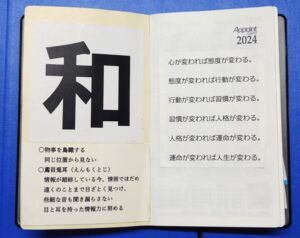 和
○物事を鳥瞰する
同じ位置から見ない
○鳶目兎耳(えんもくとじ)
情報が錯綜している今、情報でほだめ
遠くのことまで目ざとく見つけ、
些細な音も聞き漏らさない
目と耳を持った情報力に努める
Appoint
2024
心が変われば態度が変わる。
態度が変われば行動が変わる。
行動が変われば習慣が変わる。
習慣が変われば人格が変わる。
人格が変われば運命が変わる。
運命が変われば人生が変わる。